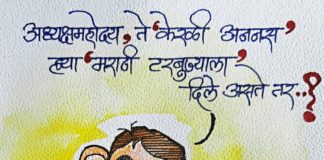 अध्यक्षमहोदय, ते 'केरळी अननस'
ह्या 'मराठी टरबुज्याला'
दिले असते तर..?